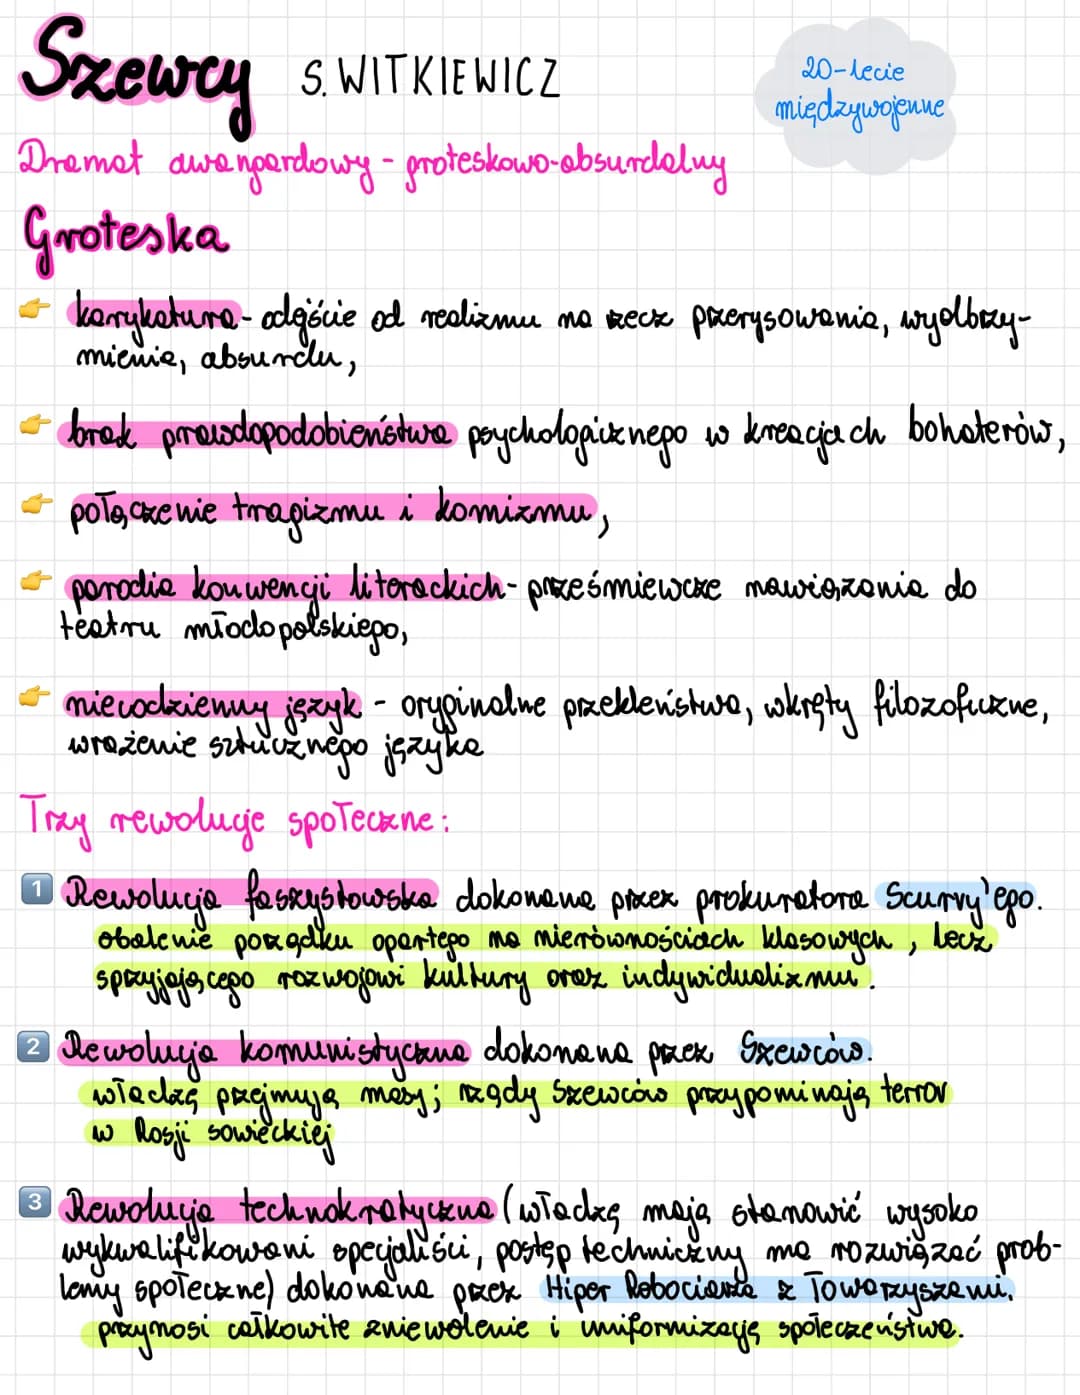 Szewcy S. WITKIEWICZ
20-lecie
międzywojenne
Dramat awangardowy - groteskowo-absurdalny
Groteska
👉 karykatura - odejście od realizmu na rzecz przerysowania, wyolbrzy-
mienia, absurdu,
👉 brak prawdopodobieństwa psychologicznego w kreacjach bohaterów,
👉 połączenie tragizmu i komizmu,
👉 parodia konwencji literackich - prześmiewcze nawiązania do
teatru młodopolskiego,
👉 niecodzienny język - oryginalne przekleństwa, wkręty filozoficzne,
wrażenie sztucznego języka
Trzy rewolucje społeczne:
1 Rewolucja faszystowska dokonana przez prokuratora Scurvy'ego.
obalenie porządku opartego na nierównościach klasowych, lecz
sprzyjającego rozwojowi kultury oraz indywidualizmu.
2 Rewolucja komunistyczna dokonana przez Szewców.
władzę przejmują masy; rządy Szewców przypominają terror
w Rosji sowieckiej
3 Rewolucja technokratyczna (władzę mają stanowić wysoko
wykwalifikowani specjaliści, postęp techniczny ma rozwiązać prob-
lemy społeczne) dokonana przez Hiper Robociarza z Towarzyszami.
przynosi całkowite zniewolenie i uniformizację społeczeństwa.